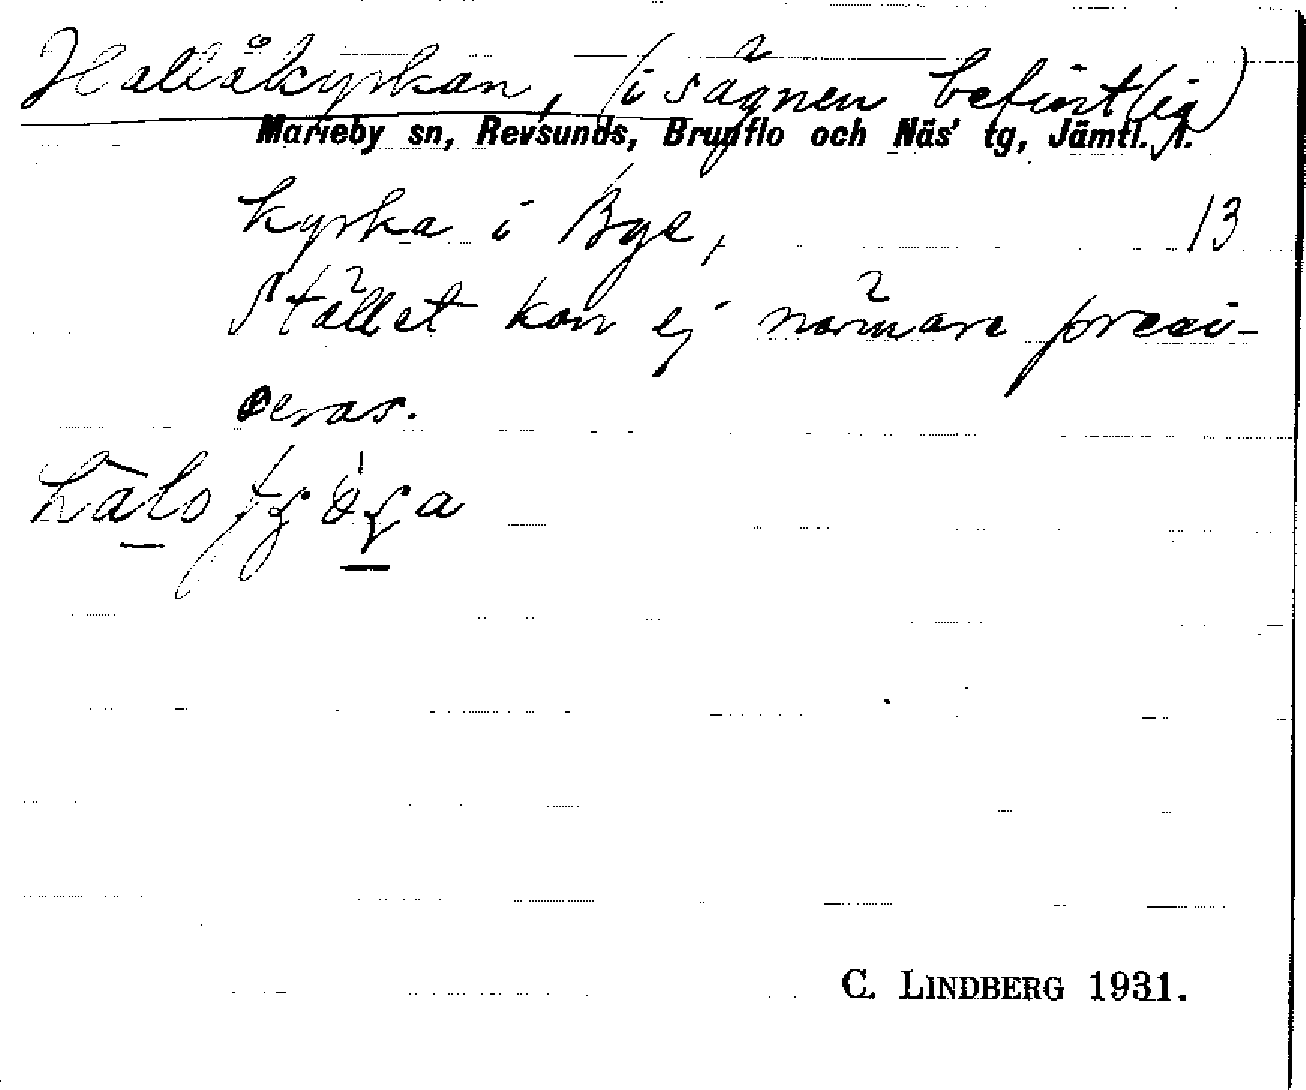 Hallåkyrkan, (i sägnen befintlig)
Marieby sn, Revsunds, Brunflo och Näs' tg, Jämtl. l.
kyrka i Bye, 13
Stället kan ej närmare preci-
seras.
C. LINDBERG 1931.